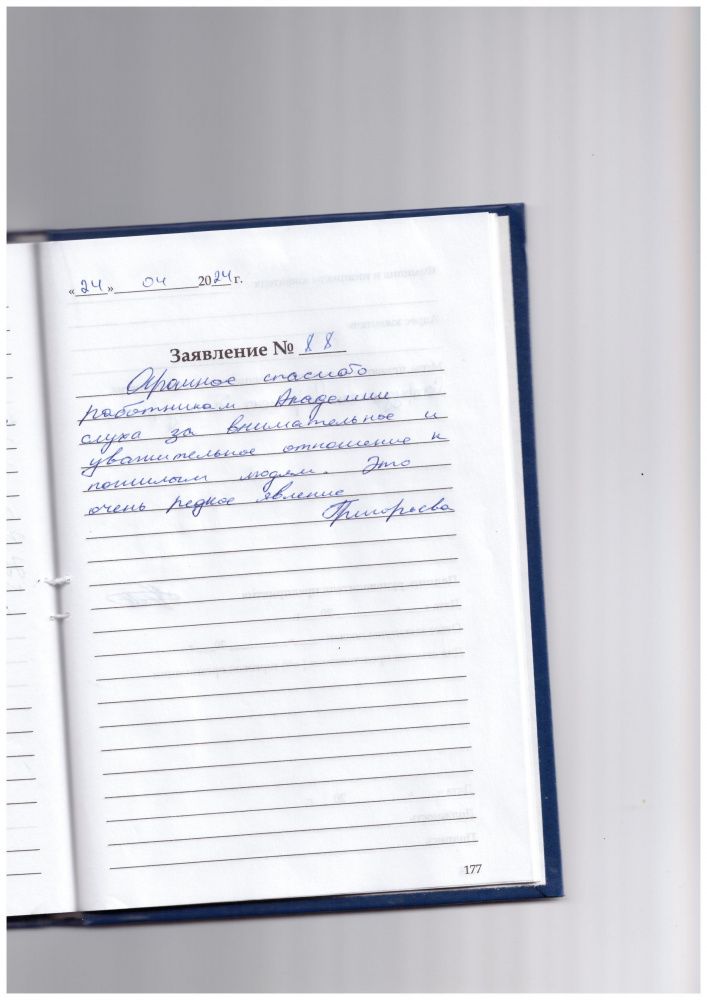 «24» 04 2024 г.
Заявление № 88
Огромное спасибо
работникам Академии
слуха за внимательное и
уважительное отношение к
пожилым людям. Это
очень редкое явление
Григорьева
177